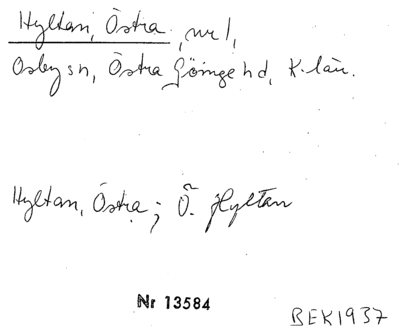 Hyltan, Östra, nr 1,
Osby sn, Östra Göinge hd, K-län.
Hyltan, Östra; Ö. Hyltan
Nr 13584
BEK 1937